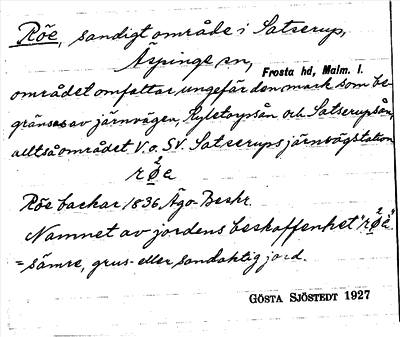 Röe, sandigt område i Satserup,
Äspinge sn, Frosta hd, Malm. l.
området omfattar ungefär den mark som be-
gränsas av järnvägen, Ryletorpsån och Satserupsån,
alltså området V. o. SV. Satserups järnvägsstation
Röe backar 1836 Ägo-Beskr.
Namnet av jordens beskaffenhet
= sämre, grus- eller sandaktig jord.
GÖSTA SJÖSTEDT 1927